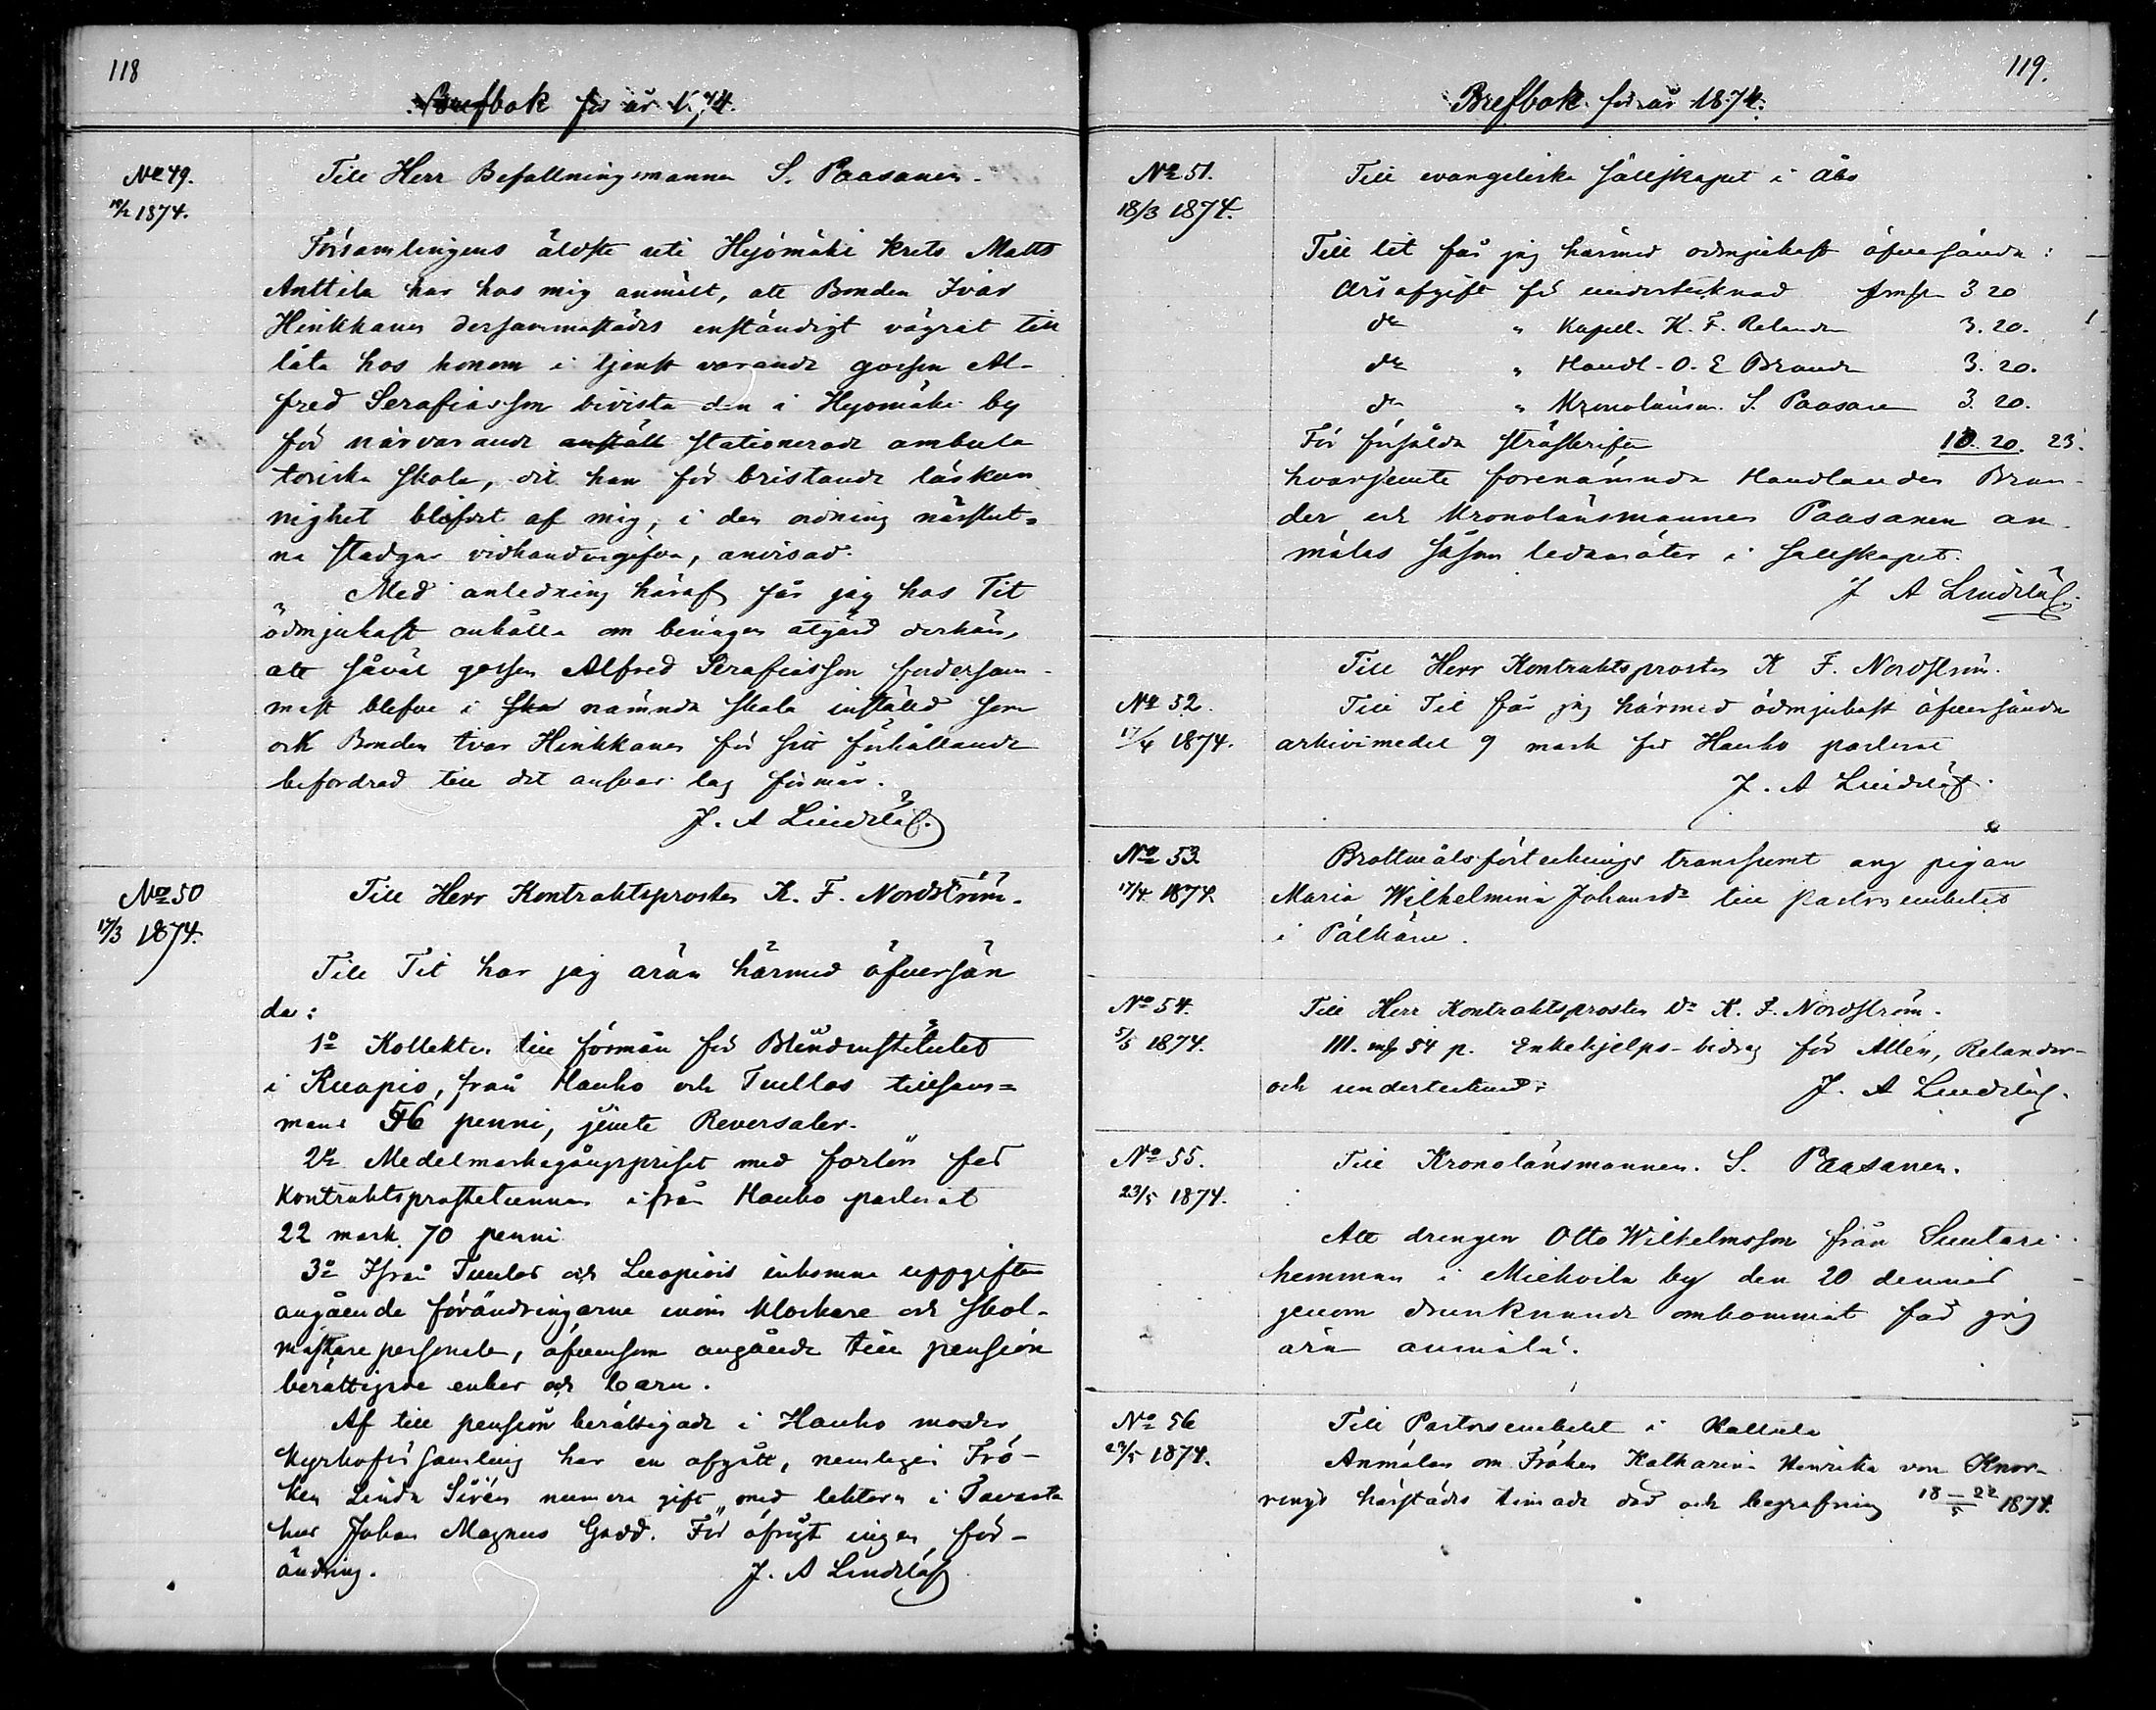 118
Brefbok för år 1874.
No 49.
19/2 1874.
Till Herr Befallningsmannen S. Paasanen.
Församlingens äldste uti Hyömäki krets Matts
Anttila har hos mig anmält, att Bonden Ivar
Hinkkanen dersammastädes enständigt vägrat till
låta hos honom i tjenst varande gossen Al-
fred Serafiasson bivista den i Hyömäki by
för närvarande anstält stationerade ambula
toriska skola, dit han för bristande läskun
nighet blifvit af mig, i den ordning
na stadgar vidhandengifva, anvisad.
Med anledning häraf får jag hos Tit
ödmjukast anhålla om benägen åtgärd derhän,
att såväl gossen Alfred Serafiasson fordersam-
mast blefve i nämnda skola instäld som
ock Bonden Ivar Hinkkanen för sitt förhållande
befordrad till det ansvar lag förmår.
J. A Lindelöf.
No 50
17/3 1874.
Till Herr Kontraktsprosten K. F. Nordström.
Till Tit har jag äran härmed öfversän
da:
1o Kollekten till förmån för Blindinstitutet
i Kuopio, från Hauho och Tuulos tillsam=
mans 56 penni, jemte Reversaler.
2o Medelmarkegångspriset med förlön för
Kontraktsprostetunnan ifrån Hauho pastorat
22 mark 70 penni
3o Ifrån Tuulos och Luopiois inkomne uppgifter
angående förändringarne inom klockare och skol-
mästare personalen, äfvensom angående till pension
berättigade enkor och barn.
Af till pension berättigade i Hauho moder
kyrkoförsamling har en afgått, nemligen Frö-
ken Linda Sirén numera gift med lektorn i Tavaste
hus Johan Magnus Gadd. För öfrigt ingen för-
ändring.
J. A Lindelöf
119.
Brefbok för år 1874.
No 51.
18/3 1874.
Till evangeliska sällskapet i Åbo
Till tit får jag härmed ödmjukast öfversända:
Årsafgift för undertecknad 3 20
do " Kapell. K. F. Relander 3. 20.
do " Handl. O. E Brander 3. 20.
do " Kronolänsm. S. Paasanen 3. 20.
För försålda ströskrifter 10. 20. 23.
hvarjemte förenämnda Handlanden Bran-
der och Kronolänsmannen Paasanen an-
mäles såsom ledamöter i sällskapet.
J A Lindelöf.
No 52.
17/4 1874.
Till Herr Kontraktsprosten K F. Nordström.
Till Tit får jag härmed ödmjukast öfversända
arkivimedel 9 mark för Hauho pastorat
J. A Lindelöf.
No 53.
17/4 1874.
Brottmålsförtecknings transsumt ang pigan
Maria Wilhelmina Johansdr till Pastorsembetet
i Pälkäne.
No 54.
5/5 1874.
Till Herr Kontraktsprosten Dr K. F. Nordström.
111. mk 54 p. Enkehjelps-bidrag för Allén, Relander-
och undertecknad.
J. A Lindelöf.
No 55.
23/5 1874.
Till Kronolänsmannen S. Paasanen.
Att drengen Otto Wilhelmsson från Suutari
hemman i Miehoila by den 20 dennes
genom drunknande omkommit får jag
äran anmäla.
No 56
23/5 1874.
Till Pastorsembetet i Kalliala
Anmälan om Fröken Katharina Henrika von Knor-
rings härstädes timade död och begrafning 18-22/5 1874.